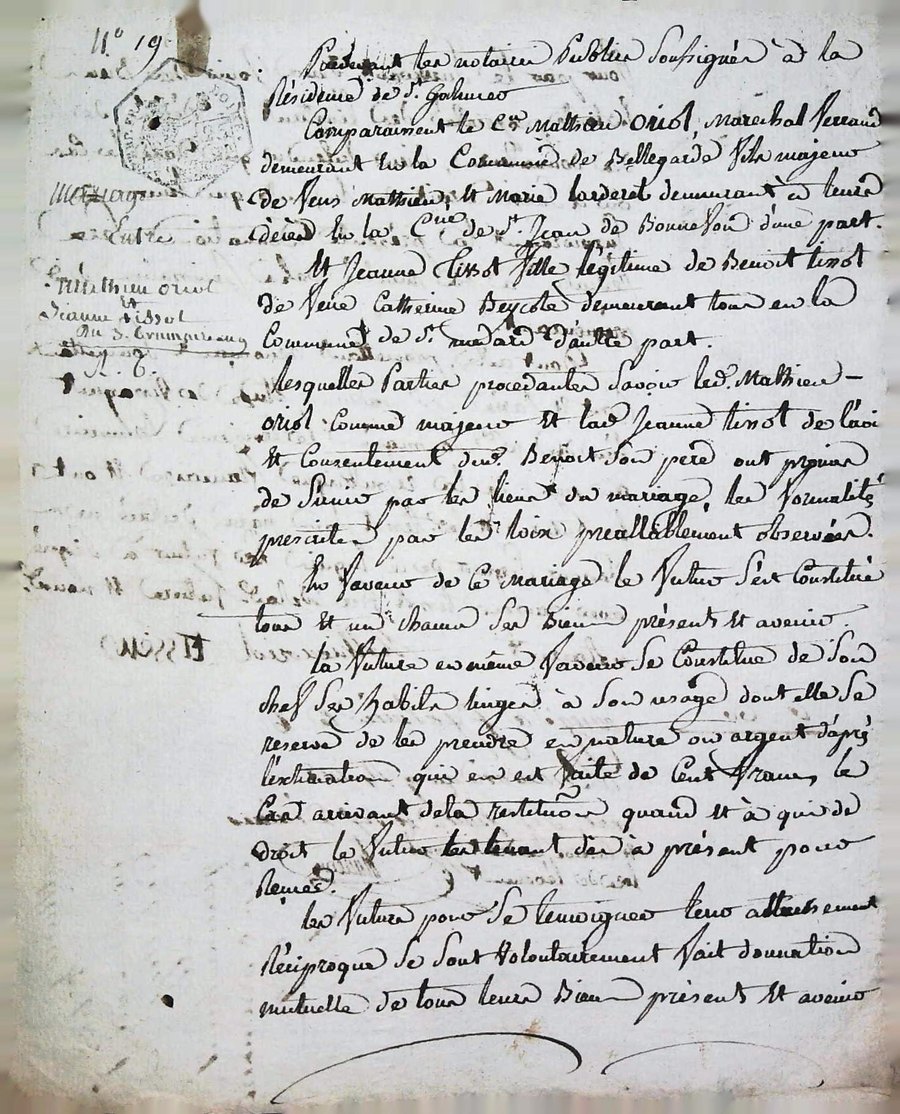 N.º 19
Pardevant les notaires Publics Soussignés à la
Résidence de S.t Galmier
Comparaissent le C.en Mathieu oriol, Marechal Ferrand
demeurant en la Commune de Bellegarde fils majeur
de feus Mathieu, et Marie larderet demeurant à leurs
décès en la C.ne de S.t Jean de Bonnefond d'une part.
Et Jeanne tissot fille légitime de Benoit tissot
de feue Catherine demeurant tous en la
Commune de S.t medard d'autre part.
lesquelles Parties procedantes Savoir led. Mathieu
oriol Comme majeur et lad. Jeanne tissot de l'avis
et Consentement dud. Benoit Son pere ont promis
de S'unir par les liens du mariage, les formalités
prescrites par les loix preallablement observées.
En faveur de Ce Mariage le futur S'est Constitué
tous et un chacun Ses Biens présents et avenir.
la future en même faveur Se Constitue de Son
chef Ses habits linges à Son usage dont elle Se
reserve de les prendre en nature ou argent d'après
l'estimation qui en est faite de Cent francs, le
Cas arrivant de la restitution quand et à qui de
droit le futur les tenant dès à présent pour
Remis.
les futurs pour Se temoigner leur attachement
Réciproque Se Sont Volontairement fait donnation
mutuelle de tous leurs Biens présents et avenir
mariage
Entre
Mathieu oriol
et
Jeanne tissot
Du 3.